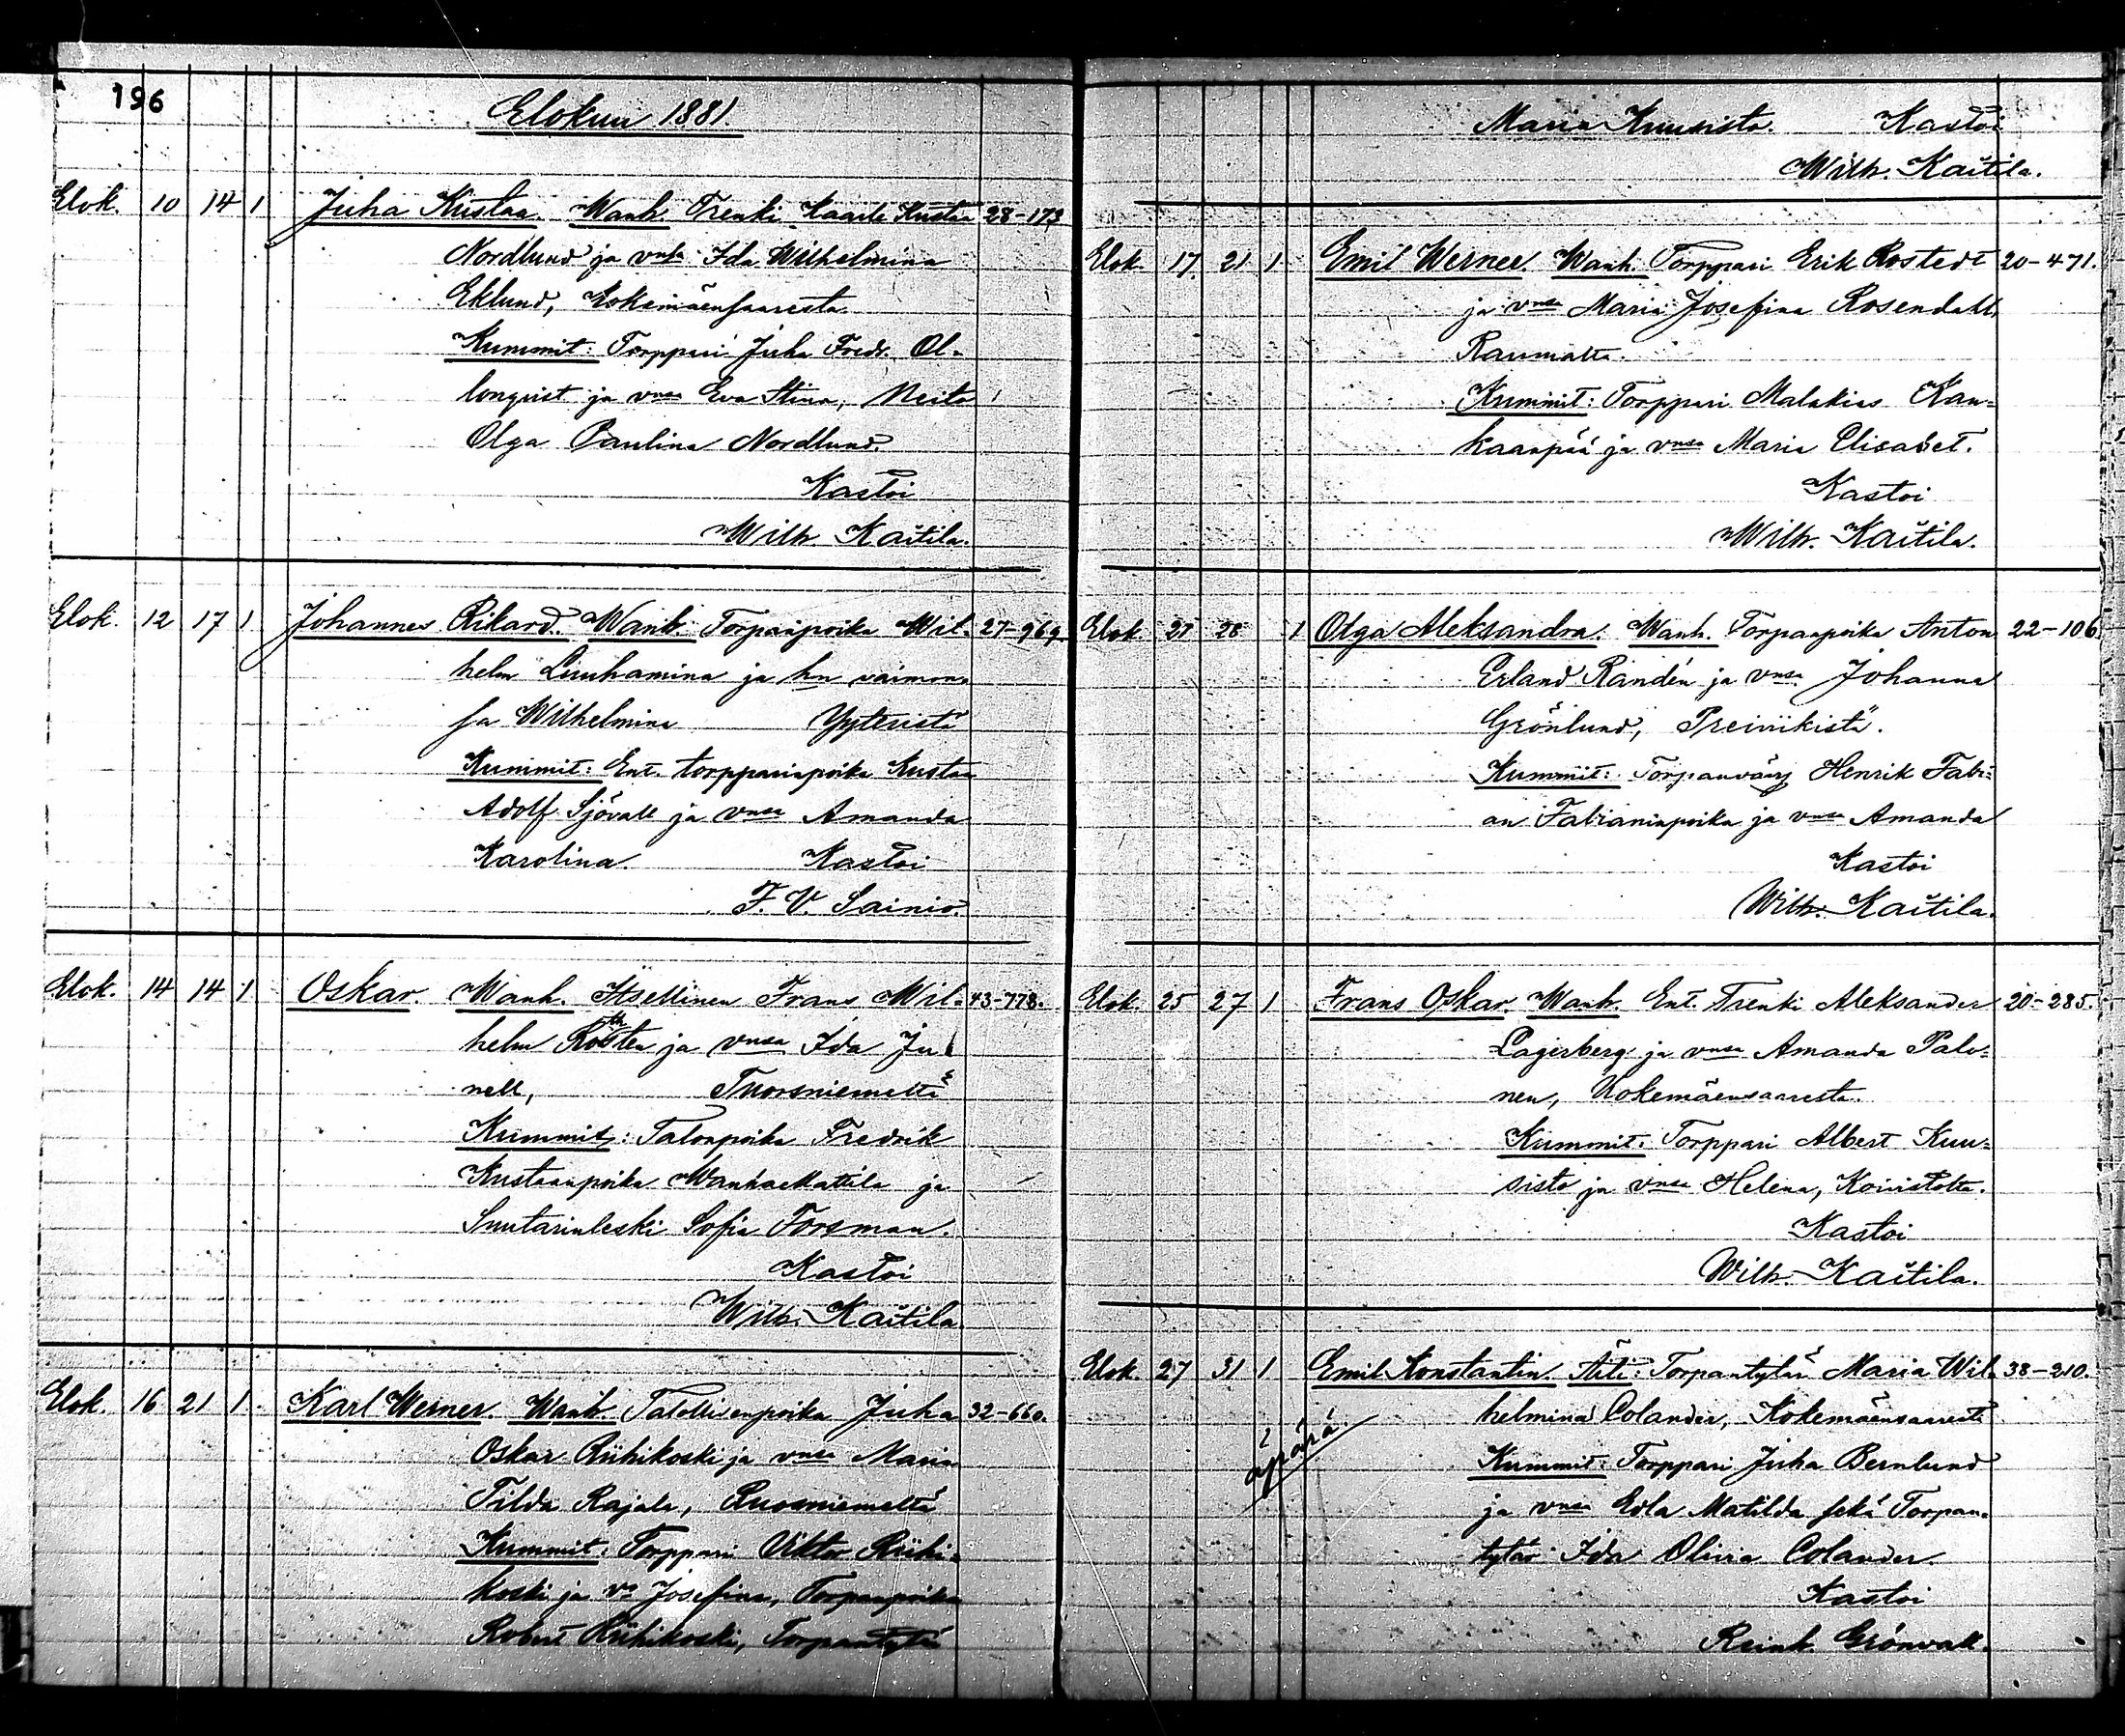 196
Elokuu 1881.
Elok. 10 14 1 Juha Kustaa. Wanh. Trenki Kaarle Kustaa 28-173
Nordlund ja vnsa Ida Wilhelmina
Eklund, Kokemäensaaresta.
Kummit: Torppari Juha Fredr. Ol-
lonqvist ja vnsa Eva Stina, Neito
Olga Paulina Nordlund.
Kastoi
Wilh. Kaitila.
Elok. 12 17 1 Johannes Rikard. Wanh. Torpanpoika Wil- 27-969
helm Luuhamina ja hn vaimon-
sa Wilhelmina Yyteristä
Kummit: Ent. torpparinpoika Kustaa
Adolf Sjövall ja vnsa Amanda
Karolina. Kastoi
F. V. Sainio.
Elok. 14 14 1 Oskar. Wanh. Itsellinen Frans Wil- 43-778.
helm ja vnsa Ida Ju-
nell, Tuorsniemeltä
Kummit: Talonpoika Fredrik
Kustaanpoika Wanhamattila ja
Suutarinleski Sofia Forsman.
Kastoi
Wilh. Kaitila.
Elok. 16 21 1 Karl Werner. Wanh. Juha 32-660.
Oskar Riihikoski ja vnsa Maria
Tilda Rajala, Ruosniemeltä
Kummit: Torppari Viktor Riihi-
koski ja vn Josefina, Torpanpoika
Robert Riihikoski, Torpantytär
Maria Kuusisto. Kastoi
Wilh. Kaitila.
Elok. 17 21 1 Emil Werner. Wanh. Torppari Erik Rostedt 20-471.
ja vnsa Maria Josefina Rosendahl,
Raumalta.
Kummit: Torppari Malakias Kan-
kaanpää ja vnsa Maria Elisabet.
Kastoi
Wilh. Kaitila.
Elok. 21 28 1 Olga Aleksandra. Wanh. Torpanpoika Anton 22-106
Erland Randén ja vnsa Johanna
Grönlund, Preiviikistä.
Kummit: Torpanvävy Henrik Fabi-
an Fabianinpoika ja vnsa Amanda
Kastoi
Wilh. Kaitila.
Elok. 25 27 1 Frans Oskar. Wanh. Ent. Trenki Aleksander 20-285.
Lagerberg ja vnsa Amanda Palo-
nen, Kokemäensaaresta.
Kummit: Torppari Albert Kuu-
sisto ja vnsa Helena, Koivistolta.
Kastoi
Wilh. Kaitila.
Elok. 27 31 1 Emil Konstantin. Äiti: Torpantytär Maria Wil- 38-210.
helmina Colander, Kokemäensaaresta
äpärä
Kummit: Torppari Juha Bernlund
ja vnsa Edla Matilda sekä Torpan-
tytär Ida Olivia Colander.
Kastoi
Reinh. Grönvall.